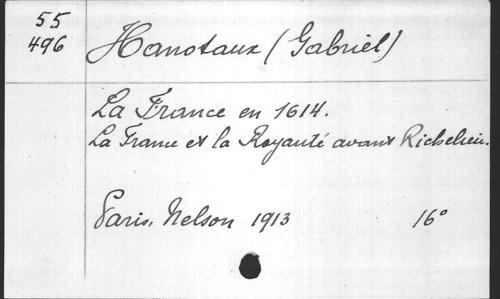 55
496
Hanotaux (Gabriel)
La France en 1614.
La France et la Royauté avant Richelieu.
Paris, Nelson 1913 16°